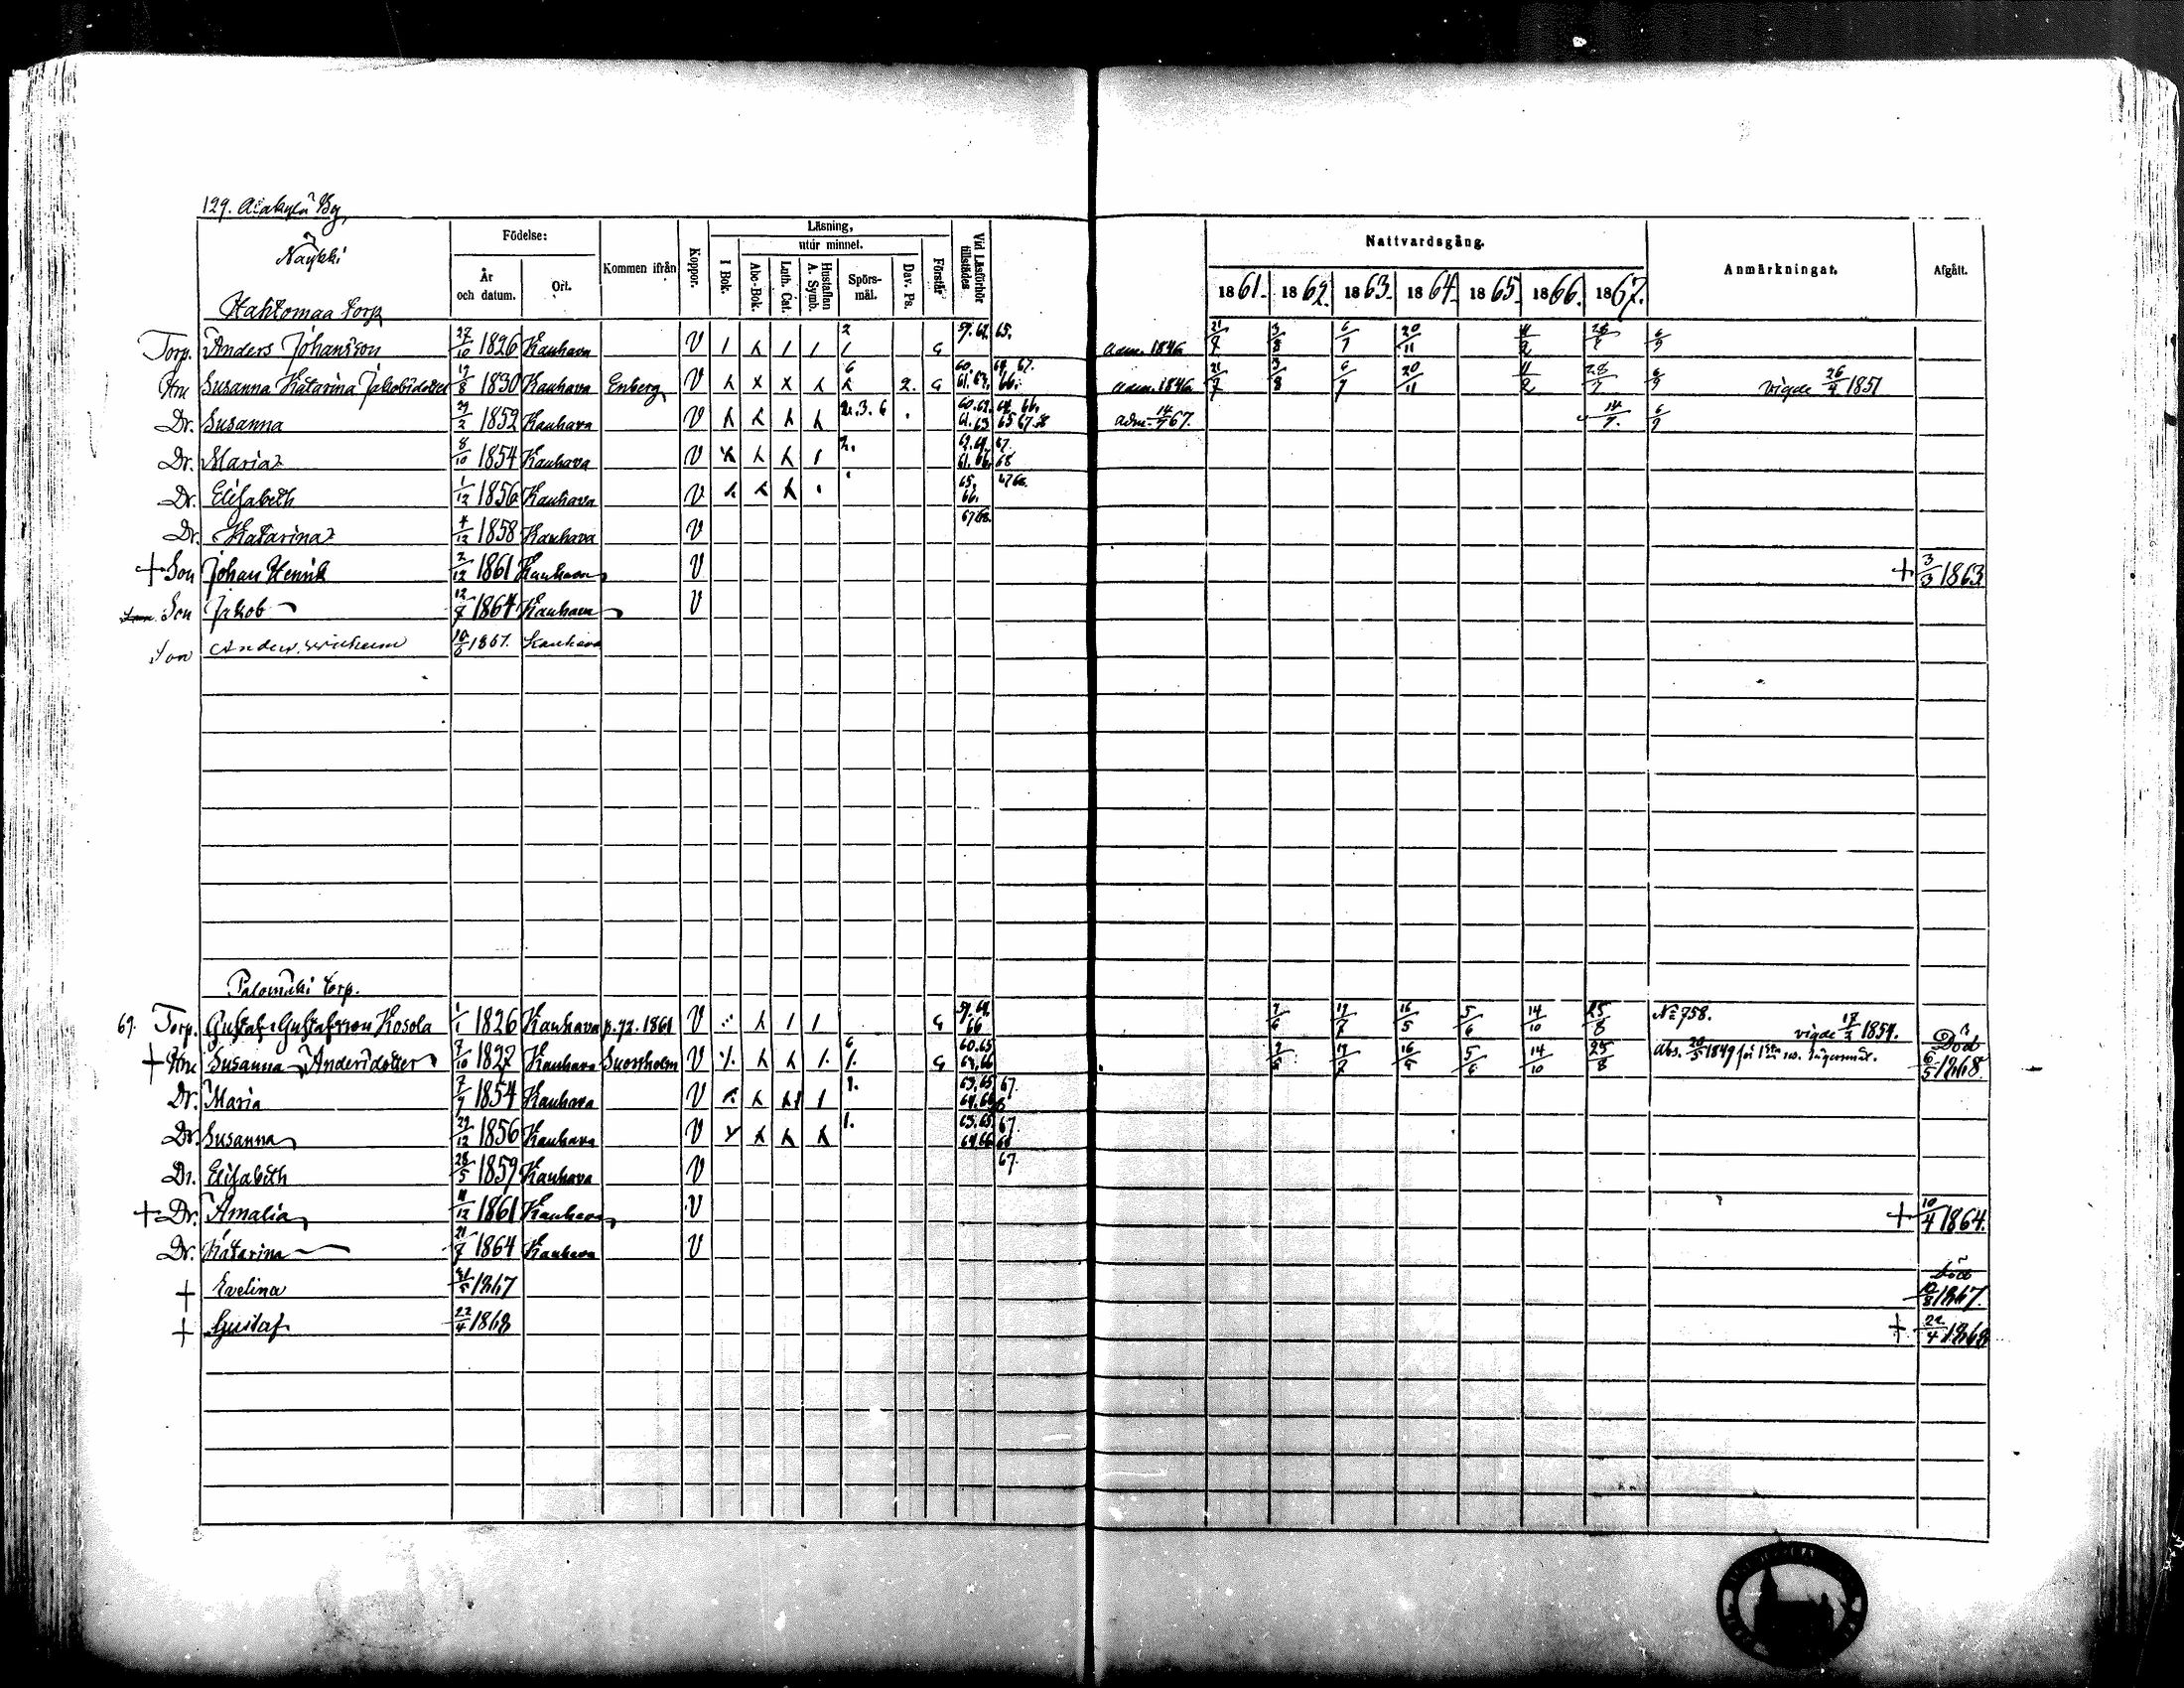 129. Alakylä By,
Näykki
Födelse:
År och datum.
Ort.
Kommen ifrån
Koppor.
Läsning,
utur minnet.
I Bok.
Abc-Bok.
Luth. Cat.
Hustaflan A. Symb.
Spörs-mål.
Dav. Ps.
Förstår
Vid Läsförhör tillstädes
Nattvardsgång.
1861. 1862. 1863. 1864. 1865. 1866. 1867.
Anmärkningar.
Afgått.
Torp. Anders Johansson 27/10 1826 Kauhava V 59. 62. 65. adm. 1846 21/7 3/8 6/7 20/11 11/2 28/7 6/9
Hru Susanna Katarina Jakobsdotter 17/8 1830 Kauhava Enberg V 2. G adm. 1846 21/7 3/8 6/7 20/11 11/2 28/7 6/9 vigde 26/4 1851
Dr. Susanna 29/2 1852 Kauhava V adm. 14/7 67. 14/7. 6/9
Dr. Maria 8/10 1854 Kauhava V
Dr. Elisabeth 1/12 1856 Kauhava V 65. 66. 67 68.
Dr. Katarina 4/12 1858 Kauhava V 67 68.
+ Son Johan Henrik 2/12 1861 Kauhava V + 3/3 1863
Son Jakob 12/7 1864 Kauhava V
Son Anders Wilhelm 1867. Kauhava
Palomäki torp.
69. Torp. Gustaf Gustafsson Kosola 1/1 1826 Kauhava p. 72. 1861 V G 59. 64. 66 7/6 17/7 16/5 5/6 14/10 25/8 No 758. vigde 17/2 1854.
+ Hru Susanna Andersdotter 7/10 1827 Kauhava V G 60. 65 64. 66 17/7 16/5 5/6 14/10 25/8 Abs. 20/5 1849 för Död 6/5 1868.
Dr. Maria 7/7 1854 Kauhava V 1. 63. 65 67.
Dr. Susanna 29/12 1856 Kauhava V 1. 63. 65 67. 64. 66 68
Dr. Elisabeth 28/5 1859 Kauhava V 67.
+ Dr. Amalia 11/12 1861 Kauhava V + 10/4 1864.
Dr. Katarina 21/7 1864 Kauhava V
+ Evelina 1867 Död 1867.
+ Gustaf 22/4 1868 + 22/4 1868